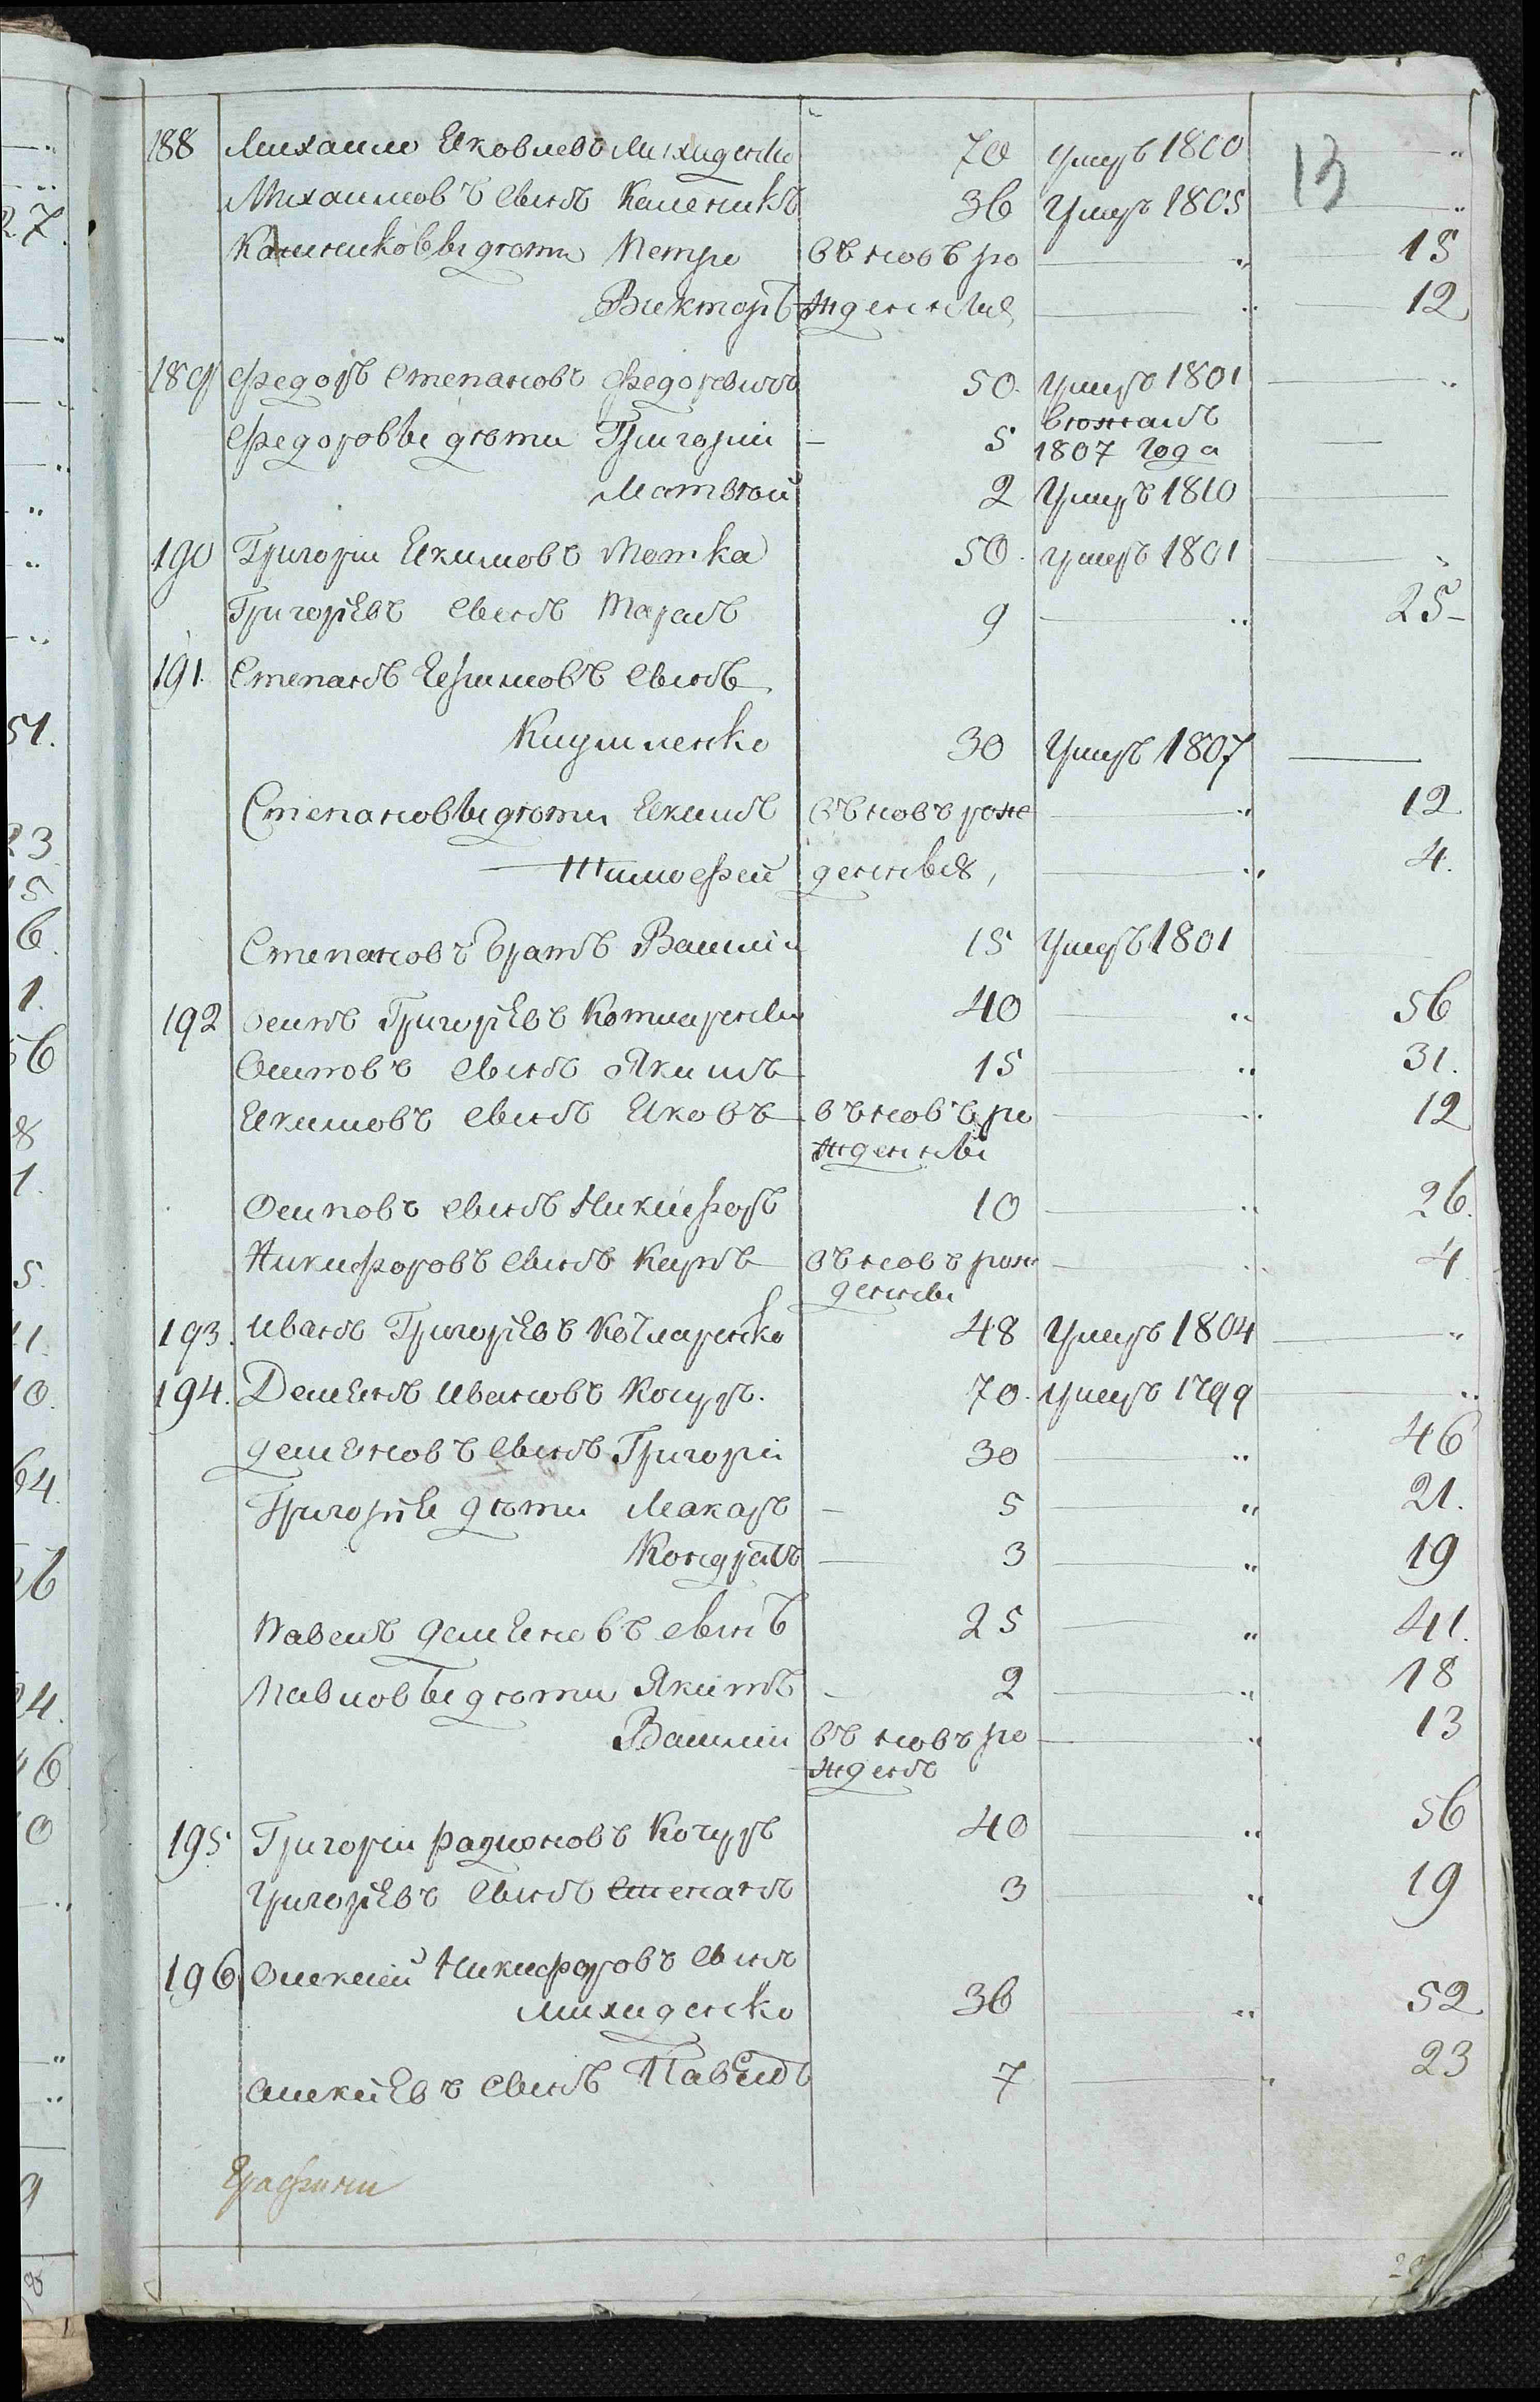 13
188 Михаило Яковлевъ Михиденко 70 умеръ 1800 "
Михаиловъ сынъ Каленикъ 36 Умеръ 1805 "
Калениковы дѣти Петро въ новъ ро " 15
Викторъ жденныя " 12
189 Федоръ Степановъ Федоревичъ 50. умеръ 1801 "
бѣжалъ
Федоровы дѣти Григорій 5 1807 года
Матвѣй 2 Умеръ 1810
190 Григорій Екимовъ Мотка 50. умеръ 1801
Григорьевъ сынъ Тарасъ 9 " 25
191. Степанъ сынъ
30 Умеръ 1807
Степановы дѣти Екимъ въ новъ рож " 12
Тимофей денныя, " 4.
Степановъ братъ Василій 15 Умеръ 1801
192 Осипъ Григорьевъ Котляренко 40 " 56
Осиповъ сынъ Якимъ 15 " 31.
Екимовъ сынъ Яковъ въ новъ ро " 12
жденны
Осиповъ сынъ Никифоръ 10 " 26.
Никифоровъ сынъ Карпъ въ новъ рож " 4
денны
193. Иванъ Григорьевъ Котляренко 48 Умеръ 1804 "
194. Дементъ Ивановъ Кочуръ. 70. умеръ 1799 "
деменовъ сынъ Григорій 30 " 46
Григоріе дѣти Макаръ 5 " 21.
Кондратъ 3 " 19
Павелъ деменовъ сынъ 25 " 41.
Павловы дѣти Якимъ 2 " 18
Василій въ новъ ро " 13
жденъ
195 Григорій Радионовъ Кочуръ 40 " 56
Григорьевъ сынъ Степанъ 3 " 19
196 Олексій Никифоровъ сынъ
михиденко 36 " 52
Олексіевъ сынъ Павелъ 7 " 23
Графини